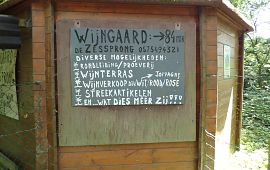 WIJNGAARD: → 84 mtr
DE ZESSPRONG 0575494321
DIVERSE MOGELIJK-
HEDEN:
RONDLEIDING/PROEVERIJ
WIJNTERRAS
WIJNVERKOOP in/ WIT/ROOD/ROSÉ
STREEKARTIKELEN
EN...WAT DIES MEER ZIJ!!!